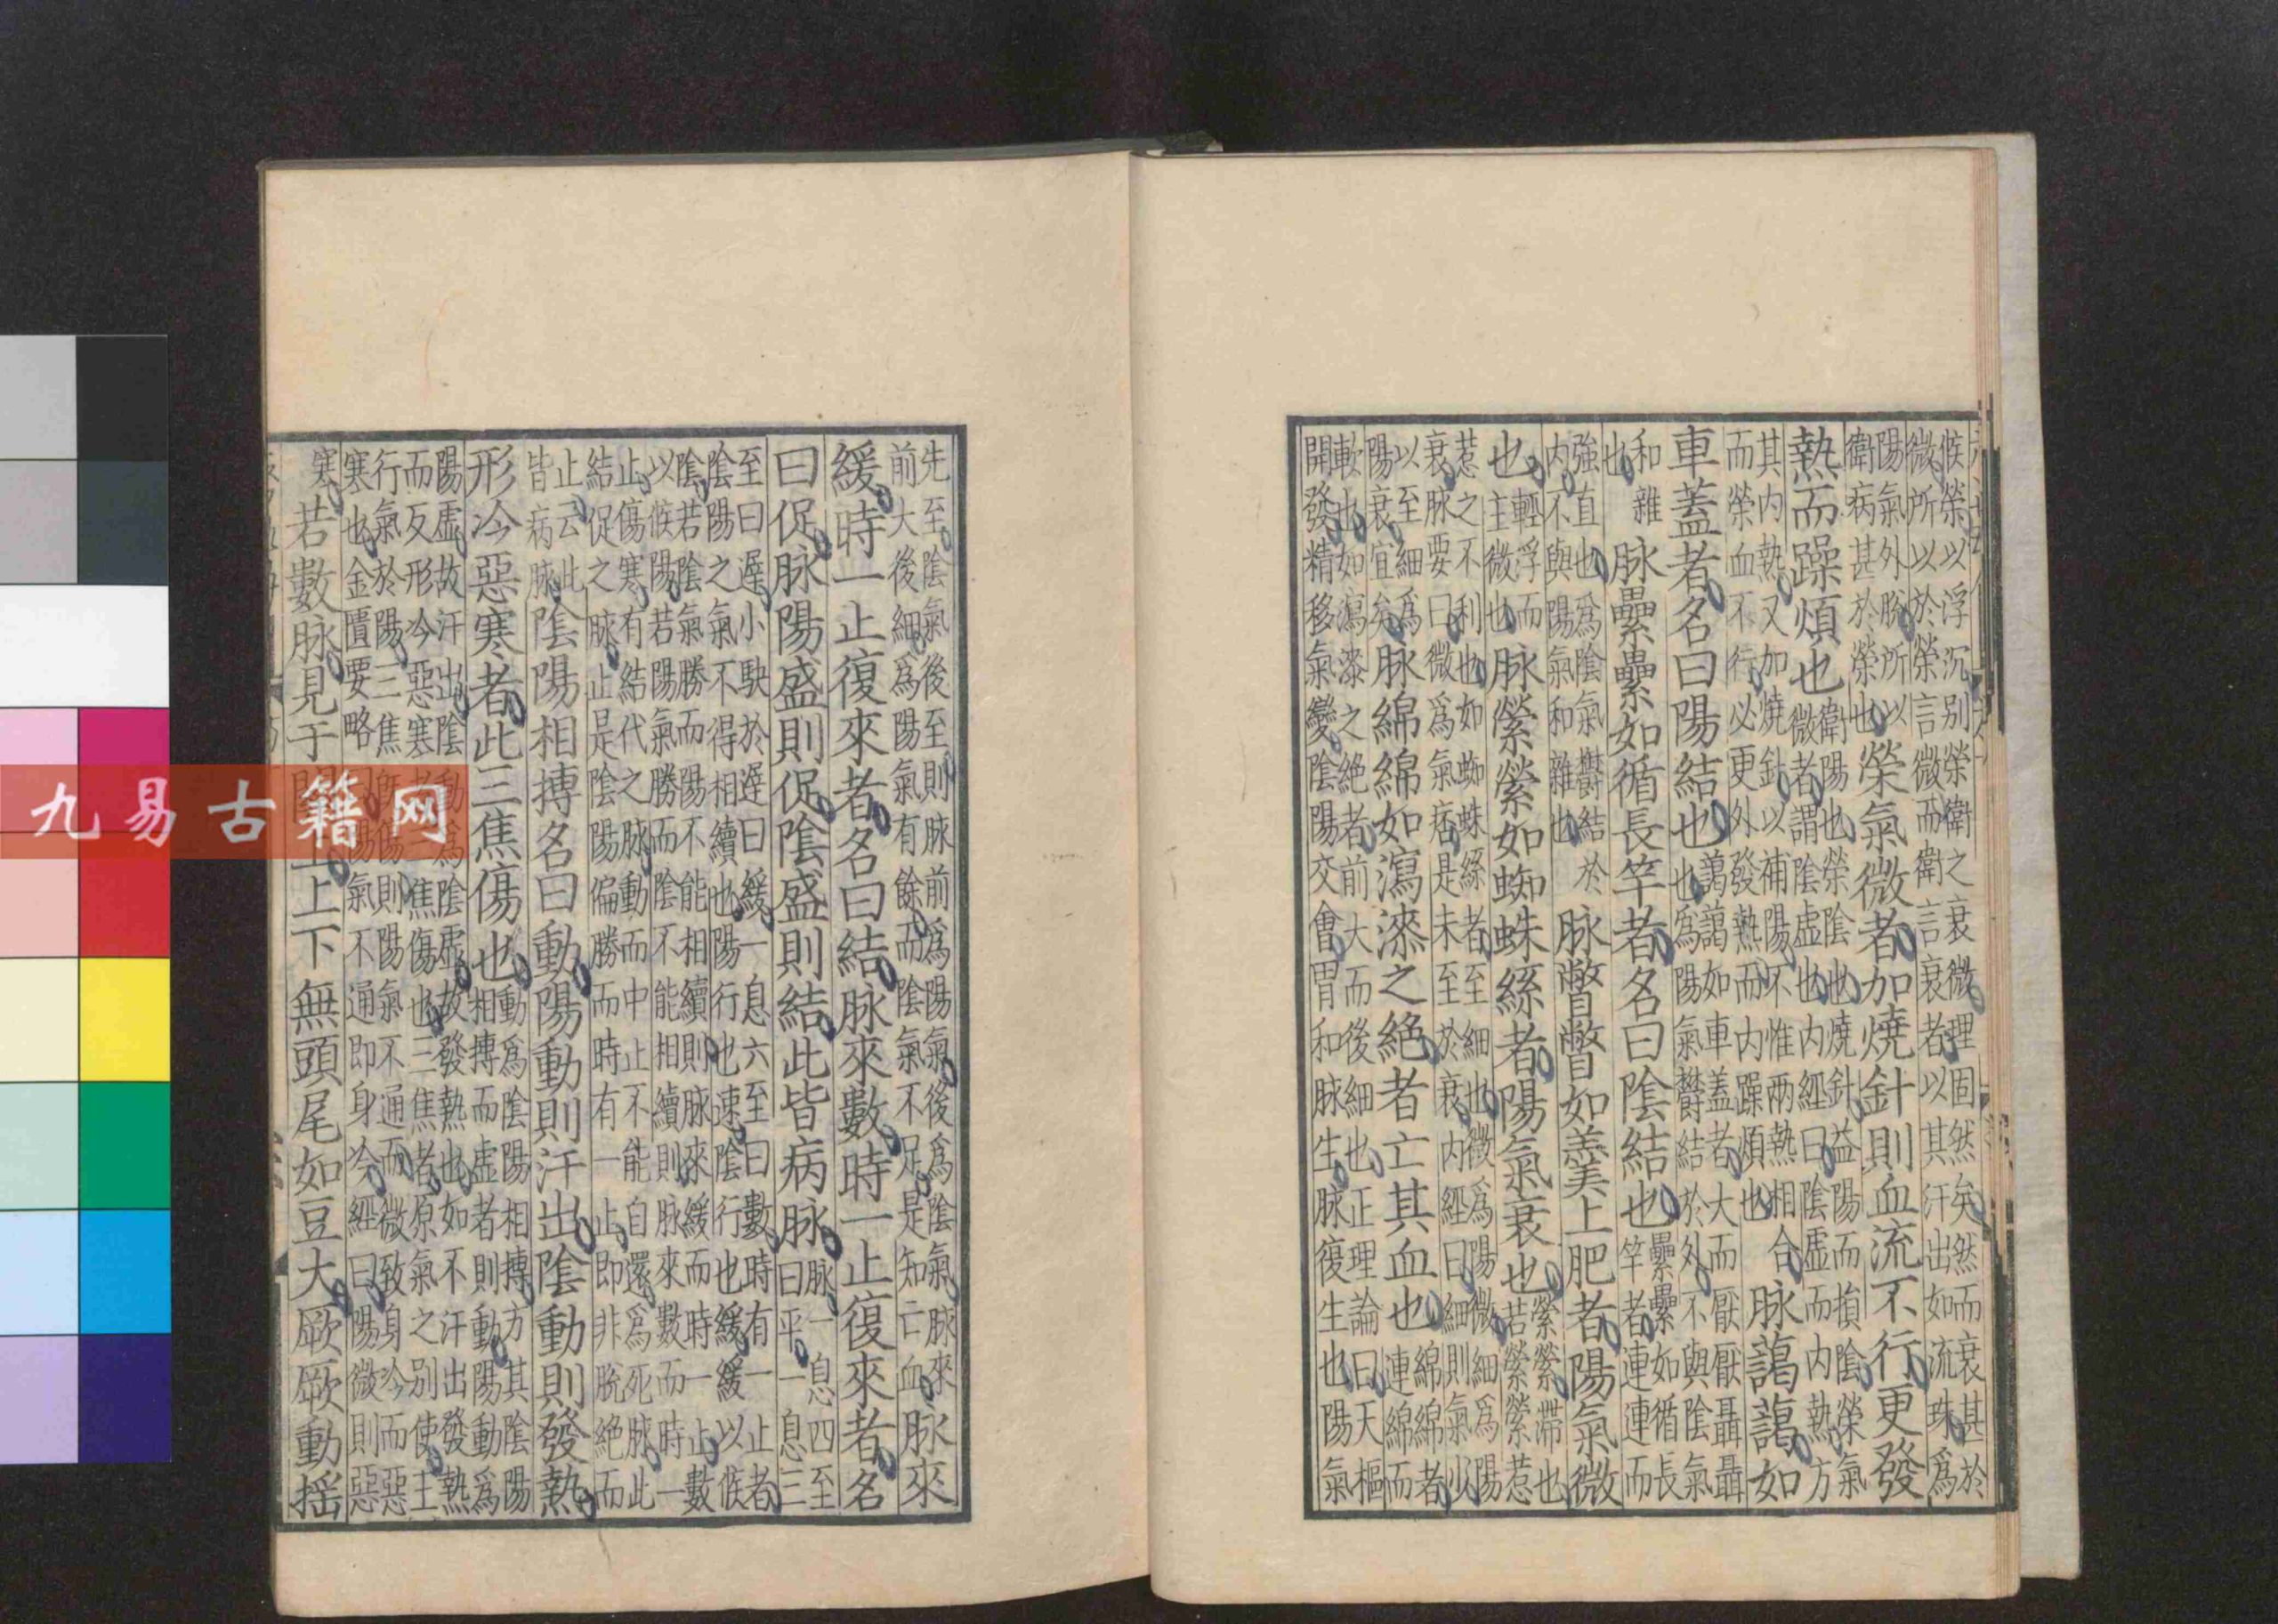 候榮以浮沉別榮衛之衰微理固然矣然而衰甚於
微所以於榮言微而衛言衰者以其汗出如流珠爲
陽氣外脫所以
衛病甚於榮也
榮氣微者加燒針則血流不行更發
熱而躁煩也
衛陽也榮陰也燒針益陽而損陰榮氣
微者謂陰虛也內經曰陰虛而內熱方
其內熱又加燒針以補陽不惟兩熱相合
而榮血不行必更外發熱而內躁煩也
脉藹藹如
車蓋者名曰陽結也
藹藹如車蓋者大而厭厭聶聶
也爲陽氣鬱結於外不與陰氣
和雜
也
脉纍纍如循長竿者名曰陰結也
纍纍如循長
竿者連連而
強直也爲陰氣鬱結於
內不與陽氣和雜也
脉瞥瞥如羹上肥者陽氣微
也
輕浮而
主微也
脉縈縈如蜘蛛絲者陽氣衰也
縈縈滯也
若縈縈惹
惹之不利也如蜘蛛絲者至細也微爲陽微細爲陽
衰脉要曰微爲氣痞是未至於衰內經曰細則氣少
以至細爲
陽衰宜矣
脉綿綿如瀉漆之絕者亡其血也
綿綿者
連綿而
軟也如瀉漆之絕者前大而後細也正理論曰天樞
開發精移氣變陰陽交會胃和脉生脉復生也陽氣
先至陰氣後至則脉前爲陽氣後爲陰氣脉來
前大後細爲陽氣有餘而陰氣不足是知亡血
脉來
緩時一止復來者名曰結脉來數時一止復來者名
曰促脉陽盛則促陰盛則結此皆病脉
脉一息四至
曰平一息三
至曰遲小駃於遲曰緩一息六至曰數時有一止者
陰陽之氣不得相續也陽行也速陰行也緩緩以候
陰若陰氣勝而陽不能相續則脉來緩而時一止數
以候陽若陽氣勝而陰不能相續則脉來數而時一
止傷寒有結代之脉動而中止不能自還爲死脉此
結促之脉止是陰陽偏勝而時有一止即非脫絕而
止云此
皆病脉
陰陽相搏名曰動陽動則汗出陰動則發熱
形冷惡寒者此三焦傷也
動爲陰陽相搏方其陰陽
相搏而虛者則動陽動爲
陽虛故汗出陰動爲陰虛故發熱也如不汗出發熱
而反形冷惡寒者三焦傷也三焦者原氣之別使主
行氣於陽三焦既傷則陽氣不通而微致身冷而惡
寒也金匱要略曰陽氣不通即身冷經曰陽微則惡
寒
若數脉見于關上上下無頭尾如豆大厥厥動搖
九易古籍网